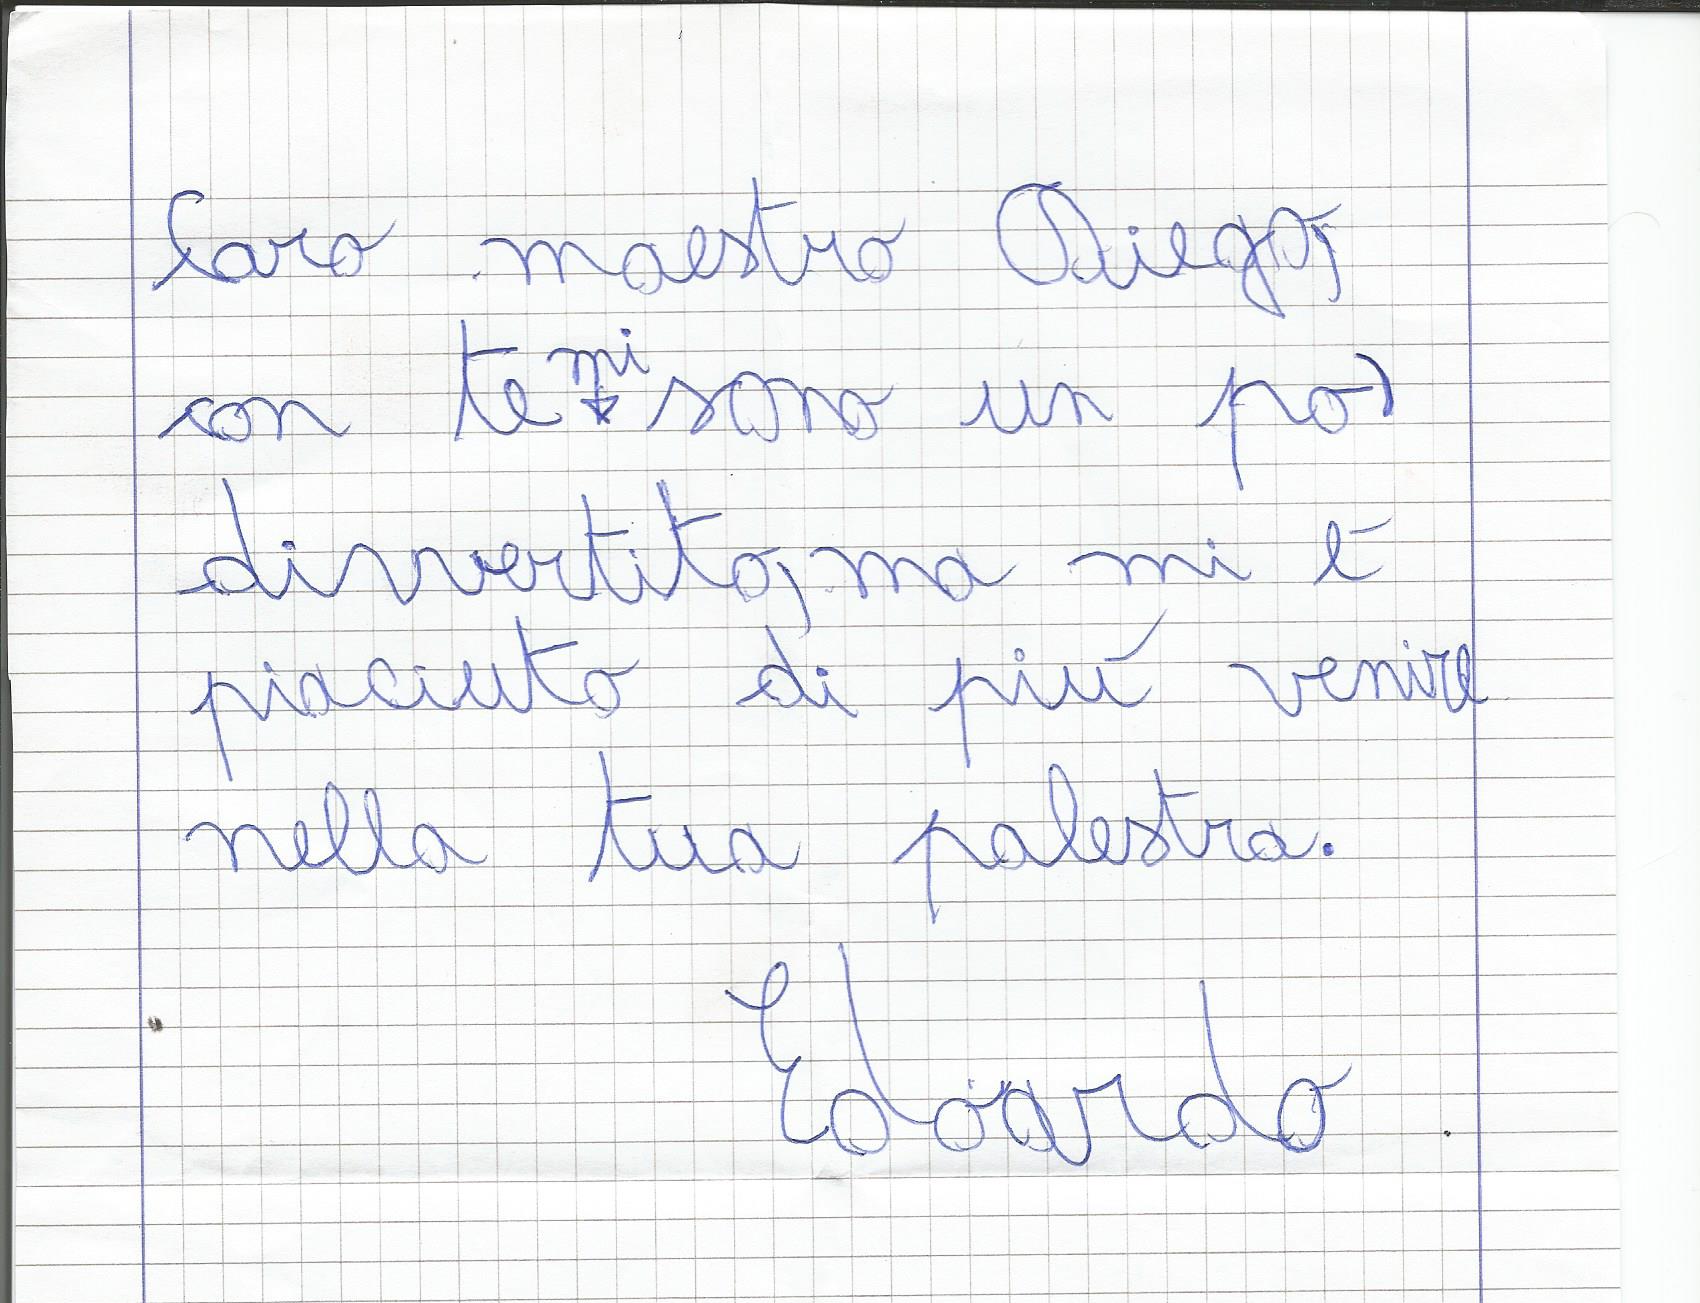 Caro maestro Diego,
con te mi sono un po'
divvertito, ma mi è
piaciuto di più venire
nella tua palestra.
Edoardo